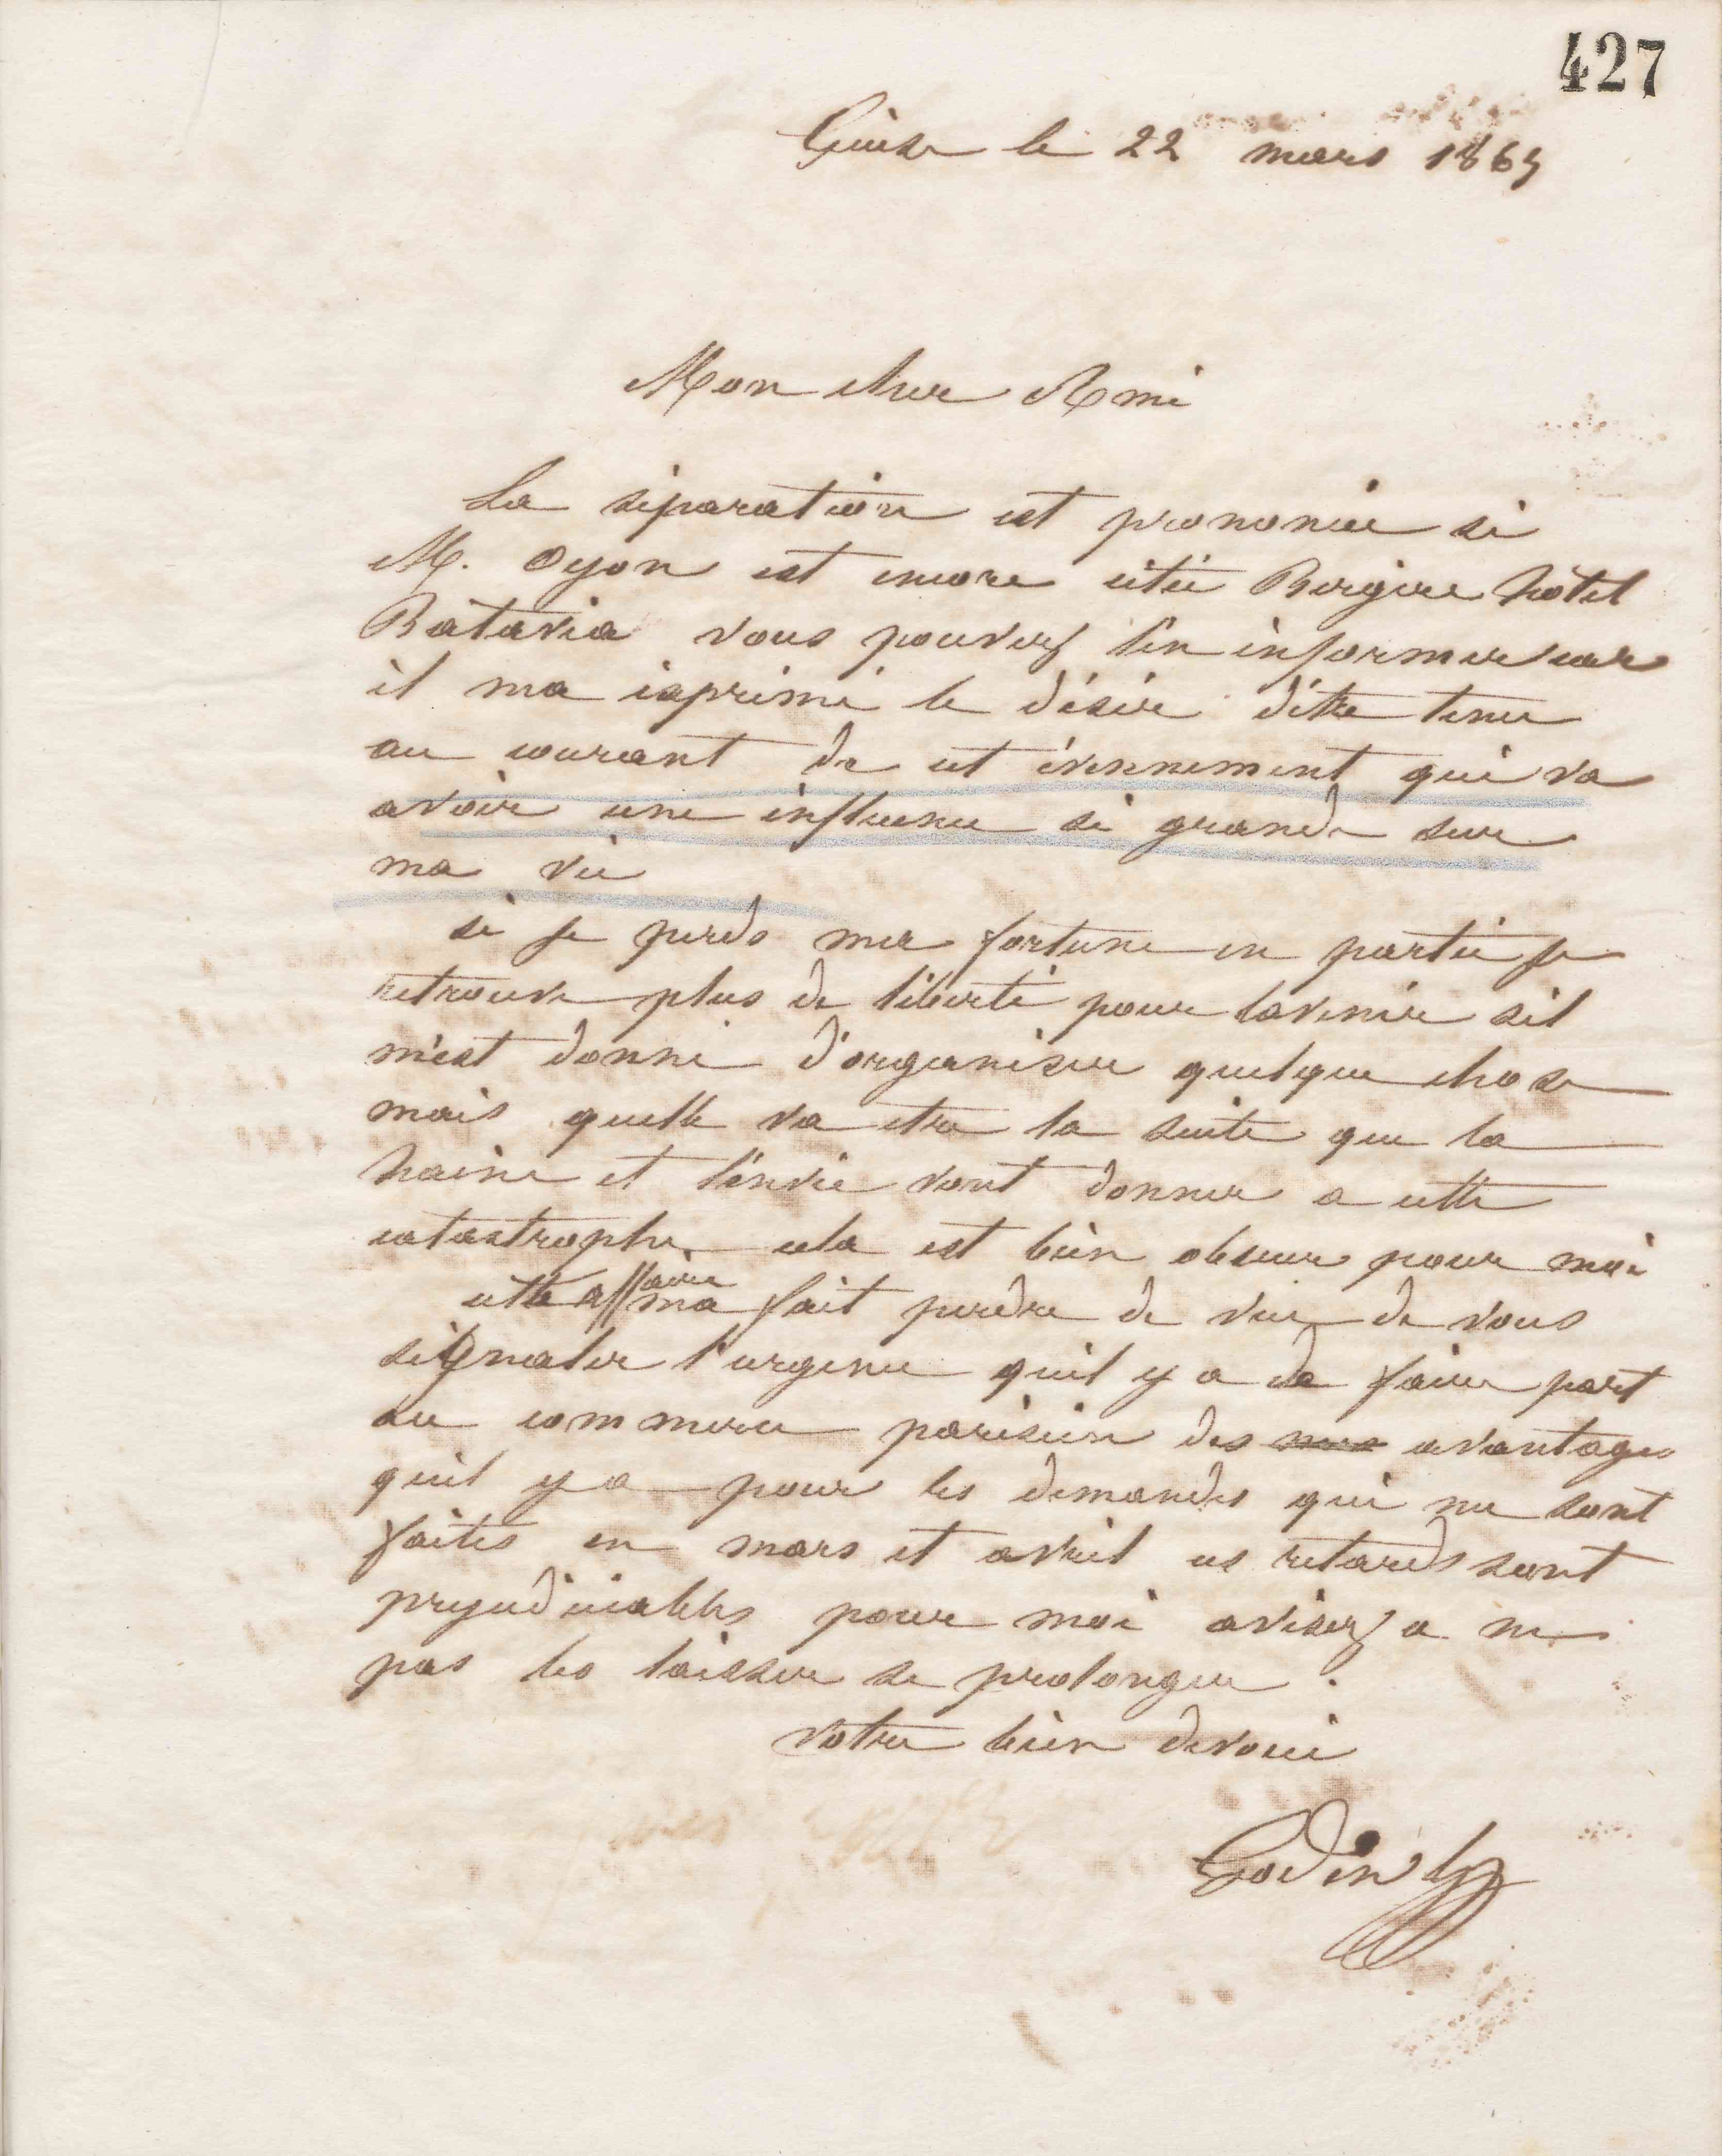 427
Guise le 22 mars 1865
Mon cher Ami
La séparation est prononcée si
M. Oyon est encore cité Bergère hôtel
Batavia vous pouvez l'en informer car
il ma exprimé le désir d'être tenu
au courant de cet évennement qui va
avoir une influence si grande sur
ma vie
si je perds ma fortune en partie je
retrouve plus de liberté pour lavenir sil
m'est donné d'organiser quelque chose
mais quelle va etre la suite que la
haine et l'envie vont donner a cette
catastrophe cela est bien obscur pour moi
cette affaire ma fait perdre de vue de vous
signaler l'urgence quil y a de faire part
au commerce parisien des mes avantages
quil y a pour les demandes qui me sont
faites en mars et avril ces retards sont
prejudiciables pour moi avisez a ne
pas les laisser se prolonger.
votre bien devoué
Godin